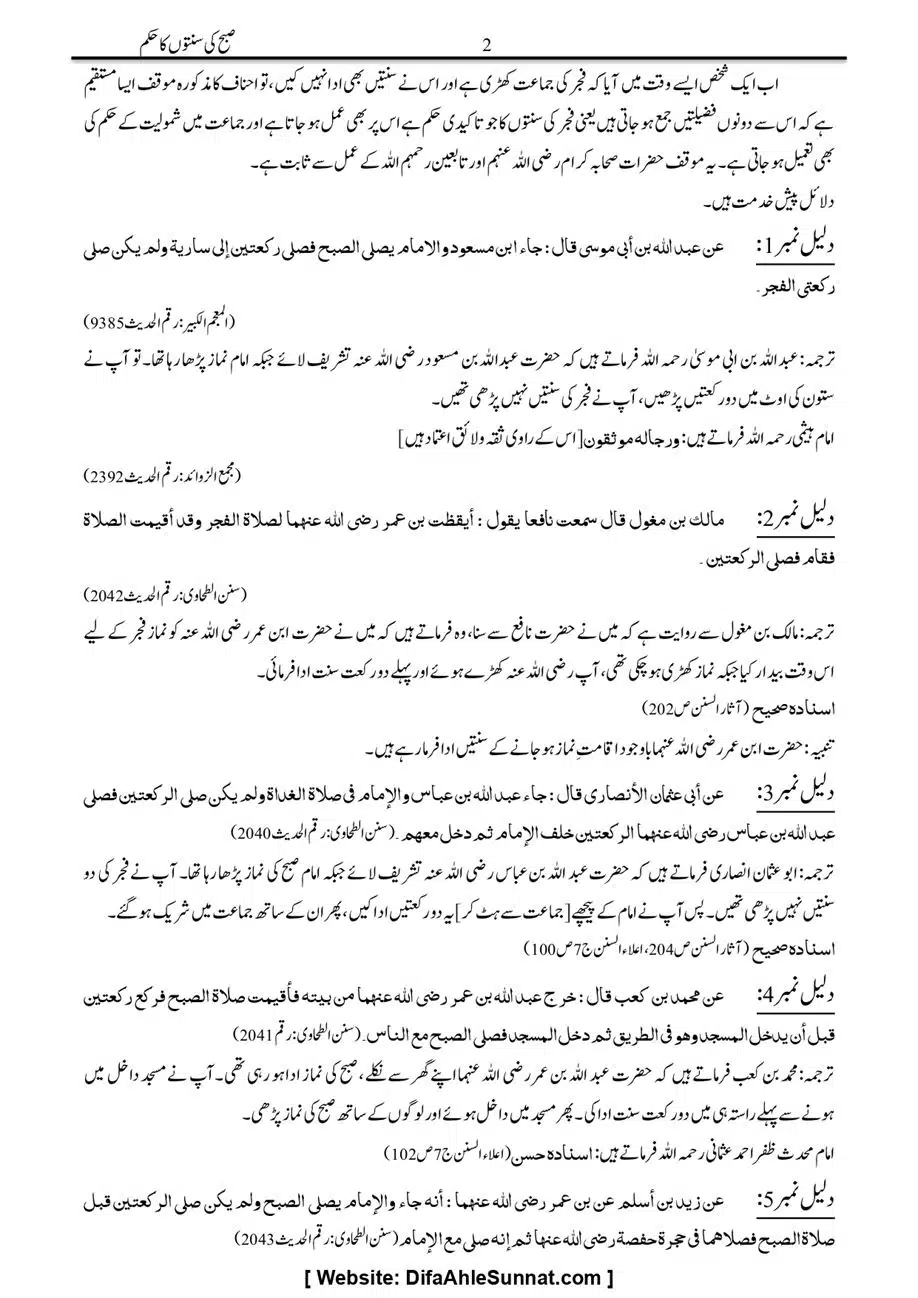 صبح کی سنتوں کا حکم
2
اب ایک شخص ایسے وقت میں آیا کہ فجر کی جماعت کھڑی ہے اور اس نے سنتیں بھی ادا نہیں کیں، تو احناف کا مذکورہ موقف ایسا مستقیم
ہے کہ اس سے دونوں فضیلتیں جمع ہو جاتی ہیں یعنی فجر کی سنتوں کا جو تاکیدی حکم ہے اس پر بھی عمل ہو جاتا ہے اور جماعت میں شمولیت کے حکم کی
بھی تعمیل ہو جاتی ہے۔ یہ موقف حضرات صحابہ کرام رضی اللہ عنہم اور تابعین رحمہم اللہ کے عمل سے ثابت ہے۔
دلائل پیش خدمت ہیں۔
دلیل نمبر 1: عن عبد الله بن أبي موسى قال : جاء ابن مسعود والامام يصلي الصبح فصلى ركعتين إلى سارية ولم يكن صلى
ركعتي الفجر ۔
(المعجم الکبیر: رقم الحدیث 9385)
ترجمہ: عبد اللہ بن ابی موسیٰ رحمہ اللہ فرماتے ہیں کہ حضرت عبد اللہ بن مسعود رضی اللہ عنہ تشریف لائے جبکہ امام نماز پڑھا رہا تھا۔ تو آپ نے
ستون کی اوٹ میں دو رکعتیں پڑھیں، آپ نے فجر کی سنتیں نہیں پڑھی تھیں۔
امام ہیثمی رحمہ اللہ فرماتے ہیں: ورجاله موثقون [اس کے راوی ثقہ ولائق اعتماد ہیں]
(مجمع الزوائد: رقم الحدیث 2392)
دلیل نمبر 2: مالك بن مغول قال سمعت نافعا يقول : أيقظت بن عمر رضي الله عنهما لصلاة الفجر وقد أقيمت الصلاة
فقام فصلى الركعتين ۔
(سنن الطحاوی: رقم الحدیث 2042)
ترجمہ: مالک بن مغول سے روایت ہے کہ میں نے حضرت نافع سے سنا، وہ فرماتے ہیں کہ میں نے حضرت ابن عمر رضی اللہ عنہ کو نماز فجر کے لیے
اس وقت بیدار کیا جبکہ نماز کھڑی ہو چکی تھی، آپ رضی اللہ عنہ کھڑے ہوئے اور پہلے دو رکعت سنت ادا فرمائی۔
اسناده صحیح (آثار السنن ص202)
تنبیہ : حضرت ابن عمر رضی اللہ عنہما باوجود اقامتِ نماز ہو جانے کے سنتیں ادا فرما رہے ہیں۔
دلیل نمبر 3: عن أبي عثمان الأنصاري قال : جاء عبد الله بن عباس والإمام في صلاة الغداة ولم يكن صلى الركعتين فصلى
عبد الله بن عباس رضي الله عنهما الركعتين خلف الإمام ثم دخل معهم ۔ (سنن الطحاوی: رقم الحدیث 2040)
ترجمہ: ابو عثمان انصاری فرماتے ہیں کہ حضرت عبد اللہ بن عباس رضی اللہ عنہ تشریف لائے جبکہ امام صبح کی نماز پڑھا رہا تھا۔ آپ نے فجر کی دو
سنتیں نہیں پڑھی تھیں۔ پس آپ نے امام کے پیچھے [جماعت سے ہٹ کر] یہ دو رکعتیں ادا کیں، پھر ان کے ساتھ جماعت میں شریک ہو گئے۔
اسناده صحیح (آثار السنن ص204، اعلاء السنن ج7 ص100)
دلیل نمبر 4: عن محمد بن كعب قال : خرج عبد الله بن عمر رضي الله عنهما من بيته فأقيمت صلاة الصبح فركع ركعتين
قبل أن يدخل المسجد وهو في الطريق ثم دخل المسجد فصلى الصبح مع الناس ۔ (سنن الطحاوی: رقم 2041)
ترجمہ: محمد بن کعب فرماتے ہیں کہ حضرت عبد اللہ بن عمر رضی اللہ عنہما اپنے گھر سے نکلے، صبح کی نماز ادا ہو رہی تھی۔ آپ نے مسجد داخل میں
ہونے سے پہلے راستہ ہی میں دو رکعت سنت ادا کی۔ پھر مسجد میں داخل ہوئے اور لوگوں کے ساتھ صبح کی نماز پڑھی۔
امام محدث ظفر احمد عثمانی رحمہ اللہ فرماتے ہیں: اسناده حسن (اعلاء السنن ج7 ص102)
دلیل نمبر 5: عن زيد بن أسلم عن بن عمر رضي الله عنهما : أنه جاء والإمام يصلي الصبح ولم يكن صلى الركعتين قبل
صلاة الصبح فصلاهما في حجرة حفصة رضي الله عنها ثم إنه صلى مع الإمام (سنن الطحاوی: رقم الحدیث 2043)
[ Website: DifaAhleSunnat.com ]